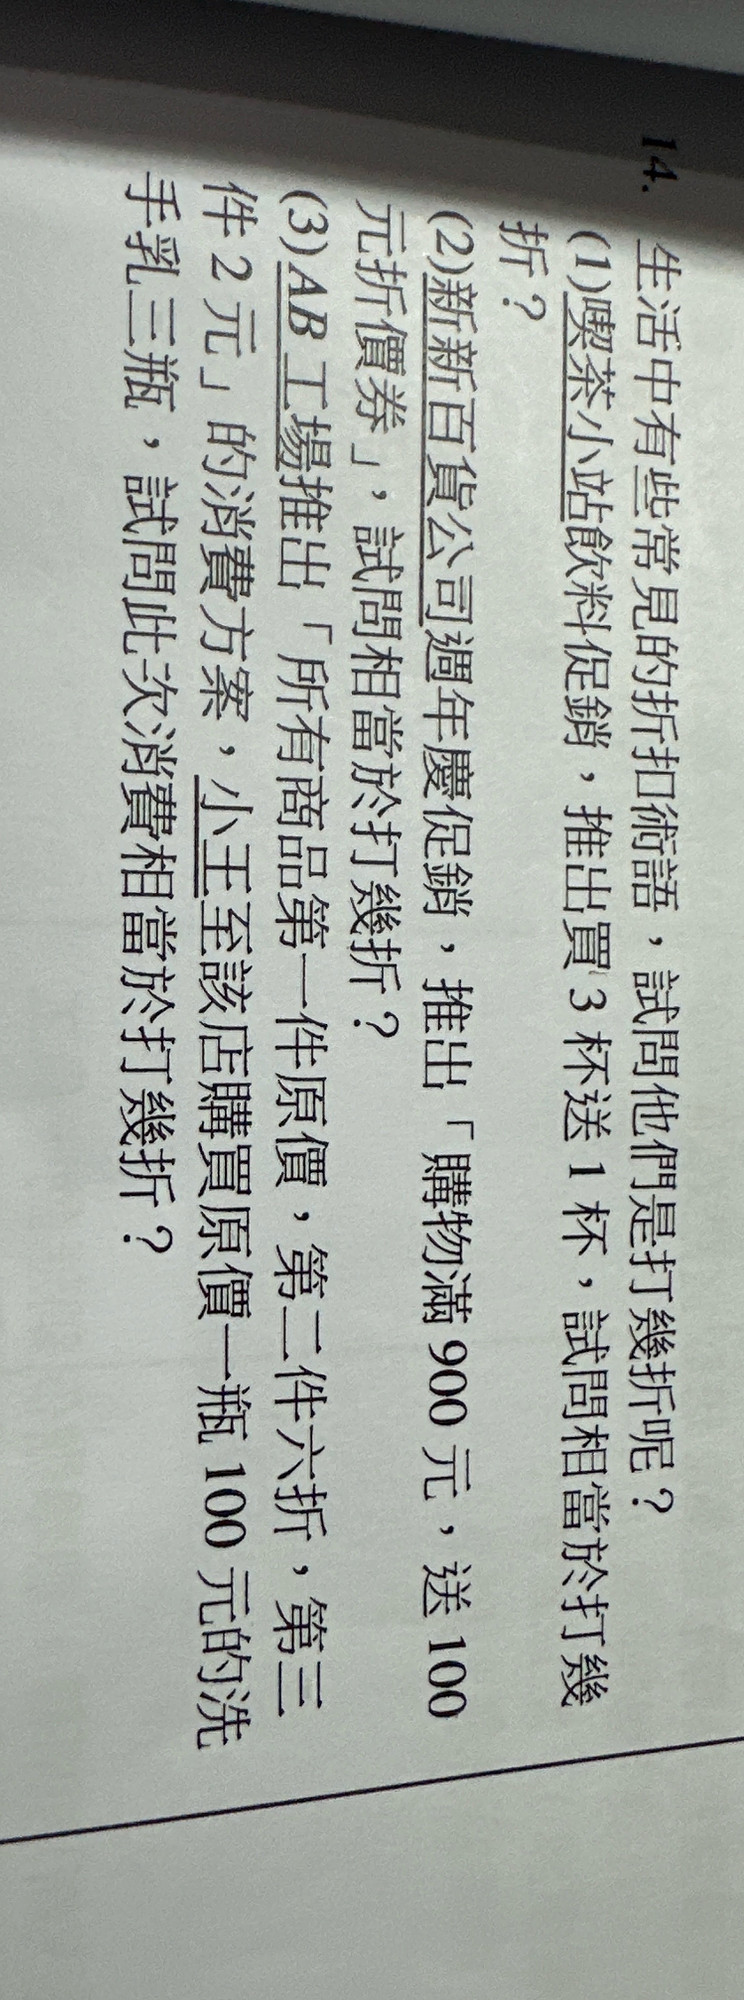 14. 生活中有些常見的折扣術語，試問他們是打幾折呢？
(1)喫茶小站飲料促銷，推出買 3 杯送 1 杯，試問相當於打幾
折？
(2)新新百貨公司週年慶促銷，推出「購物滿 900 元，送 100
元折價券」，試問相當於打幾折？
(3)AB 工場推出「所有商品第一件原價，第二件六折，第三
件 2 元」的消費方案，小王至該店購買原價一瓶 100 元的洗
手乳三瓶，試問此次消費相當於打幾折？